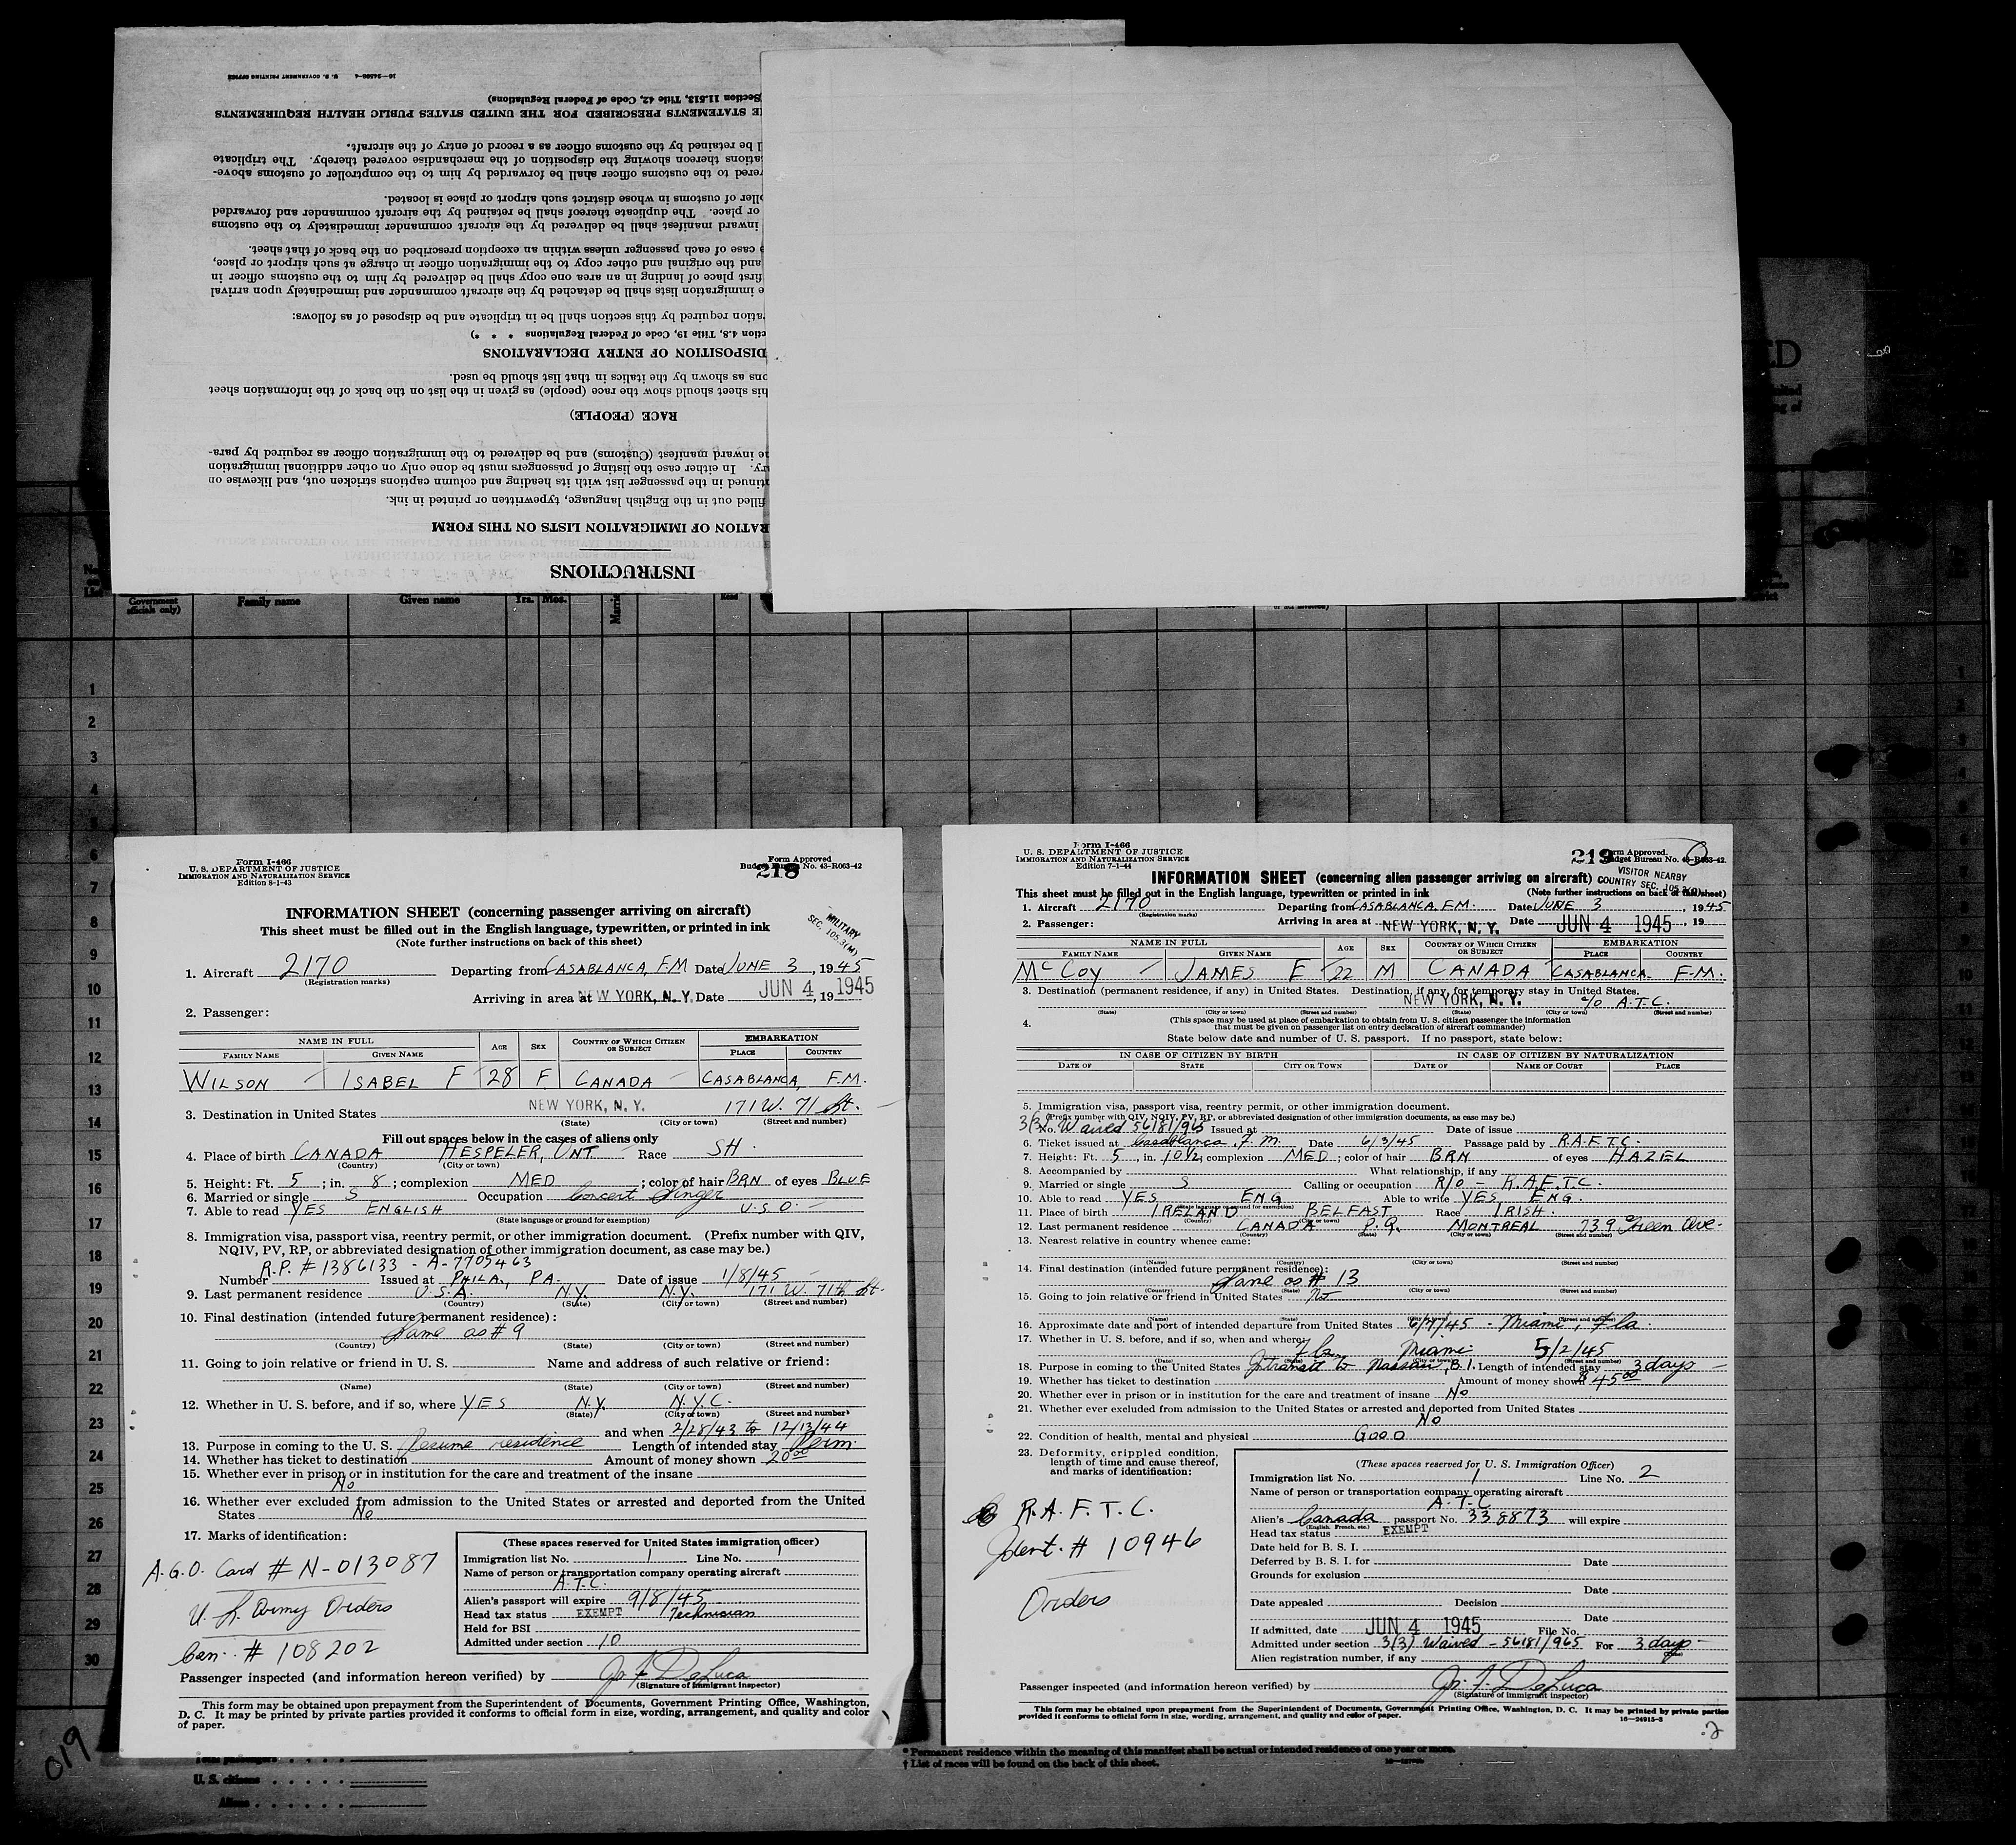 16—24598-4 U. S. GOVERNMENT PRINTING OFFICE
Section 11.513, Title 42, Code of Federal Regulations)
E STATEMENTS PRESCRIBED FOR THE UNITED STATES PUBLIC HEALTH REQUIREMENTS
l be retained by the customs officer as a record of entry of the aircraft.
ations thereon showing the disposition of the merchandise covered thereby. The triplicate
ered to the customs officer shall be forwarded by him to the comptroller of customs above-
ller of customs in whose district such airport or place is located.
or place. The duplicate thereof shall be retained by the aircraft commander and forwarded
inward manifest shall be delivered by the aircraft commander immediately to the customs
case of each passenger unless within an exception prescribed on the back of that sheet.
and the original and other copy to the immigration officer in charge at such airport or place,
first place of landing in an area one copy shall be delivered by him to the customs officer in
e immigration lists shall be detached by the aircraft commander and immediately upon arrival
ration required by this section shall be in triplicate and be disposed of as follows:
ction 4.8, Title 19, Code of Federal Regulations * * *)
DISPOSITION OF ENTRY DECLARATIONS
ons as shown by the italics in that list should be used.
his sheet should show the race (people) as given in the list on the back of the information sheet
RACE (PEOPLE)
e inward manifest (Customs) and be delivered to the immigration officer as required by para-
ry. In either case the listing of passengers must be done only on other additional immigration
tinued in the passenger list with its heading and column captions stricken out, and likewise on
filled out in the English language, typewritten or printed in ink.
RATION OF IMMIGRATION LISTS ON THIS FORM
INSTRUCTIONS
ED
Government officials only) Family name Given name Yrs. Mos. Read
1
2
3
4
5
6
7
8
9
10
11
12
13
14
15
16
17
18
19
20
21
22
23
24
25
26
27
28
29
30
Form I-466
U. S. DEPARTMENT OF JUSTICE
IMMIGRATION AND NATURALIZATION SERVICE
Edition 8-1-43
Form Approved
Budget Bureau No. 43-R063-42
218
INFORMATION SHEET (concerning passenger arriving on aircraft)
This sheet must be filled out in the English language, typewritten, or printed in ink
(Note further instructions on back of this sheet)
MILITARY
SEC. 105.3(M)
1. Aircraft 2170 Departing from CASABLANCA, F.M Date JUNE 3, 1945
(Registration marks)
Arriving in area at NEW YORK, N. Y. Date JUN 4, 19 1945
2. Passenger:
NAME IN FULL AGE SEX COUNTRY OF WHICH CITIZEN OR SUBJECT EMBARKATION
FAMILY NAME GIVEN NAME PLACE COUNTRY
WILSON ISABEL F 28 F CANADA CASABLANCA, F.M.
3. Destination in United States NEW YORK, N. Y. 171 W. 71 St.
(State) (City or town) (Street and number)
Fill out spaces below in the cases of aliens only
4. Place of birth CANADA HESPELER, ONT Race SH.
(Country) (City or town)
5. Height: Ft. 5; in. 8; complexion MED; color of hair BRN of eyes BLUE
6. Married or single S Occupation Concert Singer
7. Able to read YES ENGLISH U.S.O.
(State language or ground for exemption)
8. Immigration visa, passport visa, reentry permit, or other immigration document. (Prefix number with QIV,
NQIV, PV, RP, or abbreviated designation of other immigration document, as case may be.)
R.P. # 1386133 - A-7705463
Number Issued at PHILA., PA. Date of issue 1/8/45
9. Last permanent residence U.S.A. N.Y. N.Y. 171 W. 71th St.
(Country) (State) (City or town) (Street and number)
10. Final destination (intended future permanent residence):
Same as # 9
(Country) (State) (City or town) (Street and number)
11. Going to join relative or friend in U. S. Name and address of such relative or friend:
(Name) (State) (City or town) (Street and number)
12. Whether in U. S. before, and if so, where YES N.Y. N.Y.C.
(State) (City or town) (Street and number)
and when 2/28/43 to 12/13/44
13. Purpose in coming to the U. S. Resume residence Length of intended stay Perm.
14. Whether has ticket to destination Amount of money shown 20 00
15. Whether ever in prison or in institution for the care and treatment of the insane
No
16. Whether ever excluded from admission to the United States or arrested and deported from the United
States No
17. Marks of identification:
A.G.O. Card # N-013087
U.S. Army Orders
Can. # 108202
(These spaces reserved for United States immigration officer)
Immigration list No. 1 Line No. 1
Name of person or transportation company operating aircraft
A.T.C.
Alien's passport will expire 9/8/45
Head tax status EXEMPT Technician
Held for BSI
Admitted under section 10
Passenger inspected (and information hereon verified) by Jos. F. DeLuca
(Signature of immigrant inspector)
This form may be obtained upon prepayment from the Superintendent of Documents, Government Printing Office, Washington,
D. C. It may be printed by private parties provided it conforms to official form in size, wording, arrangement, and quality and color
of paper.
Form I-466
U. S. DEPARTMENT OF JUSTICE
IMMIGRATION AND NATURALIZATION SERVICE
Edition 7-1-44
219
Form Approved.
Budget Bureau No. 43-R063-42.
INFORMATION SHEET (concerning alien passenger arriving on aircraft)
VISITOR NEARBY
COUNTRY SEC. 105.3(O)
This sheet must be filled out in the English language, typewritten or printed in ink (Note further instructions on back of this sheet)
1. Aircraft 2170 Departing from CASABLANCA, F.M. Date JUNE 3, 1945
(Registration marks)
2. Passenger: Arriving in area at NEW YORK, N. Y. Date JUN 4 1945, 19
NAME IN FULL AGE SEX COUNTRY OF WHICH CITIZEN OR SUBJECT EMBARKATION
FAMILY NAME GIVEN NAME PLACE COUNTRY
McCOY JAMES E 22 M CANADA CASABLANCA. F.M.
3. Destination (permanent residence, if any) in United States. Destination, if any, for temporary stay in United States.
NEW YORK, N. Y. c/o A.T.C.
(State) (City or town) (Street and number) (State) (City or town) (Street and number)
4. (This space may be used at place of embarkation to obtain from U. S. citizen passenger the information
that must be given on passenger list on entry declaration of aircraft commander)
State below date and number of U. S. passport. If no passport, state below:
IN CASE OF CITIZEN BY BIRTH IN CASE OF CITIZEN BY NATURALIZATION
DATE OF STATE CITY OR TOWN DATE OF NAME OF COURT PLACE
5. Immigration visa, passport visa, reentry permit, or other immigration document.
(Prefix number with QIV, NQIV, PV, RP, or abbreviated designation of other immigration documents, as case may be.)
3(3) No. Waived 56181/965 Issued at Date of issue
6. Ticket issued at Casablanca, F.M. Date 6/3/45 Passage paid by R.A.F.T.C.
7. Height: Ft. 5, in. 10½; complexion MED; color of hair BRN of eyes HAZEL
8. Accompanied by What relationship, if any
9. Married or single S Calling or occupation R/O - R.A.F.T.C.
10. Able to read YES ENG Able to write YES ENG.
11. Place of birth IRELAND BELFAST Race IRISH.
12. Last permanent residence CANADA P.Q. MONTREAL 739 Green Ave.
(Country) (State) (City or town) (Street and number)
13. Nearest relative in country whence came:
(Name) (Country) (City or town) (Street and number)
14. Final destination (intended future permanent residence):
Same as # 13
(Country) (State) (City or town) (Street and number)
15. Going to join relative or friend in United States No
16. Approximate date and port of intended departure from United States 6/7/45 - Miami, Fla.
17. Whether in U. S. before, and if so, when and where:
Fla. Miami 5/2/45
18. Purpose in coming to the United States Intransit to Nassau, B.I. Length of intended stay 3 days
19. Whether has ticket to destination Amount of money shown $45 00
20. Whether ever in prison or in institution for the care and treatment of insane No
21. Whether ever excluded from admission to the United States or arrested and deported from United States
No
22. Condition of health, mental and physical GOOD
23. Deformity, crippled condition,
length of time and cause thereof,
and marks of identification:
R.A.F.T.C.
Ident. # 10946
Orders
(These spaces reserved for U. S. Immigration Officer)
Immigration list No. 1 Line No. 2
Name of person or transportation company operating aircraft
A.T.C
Alien's Canada passport No. 338873 will expire
(English, French, etc.)
Head tax status EXEMPT
Date held for B. S. I.
Deferred by B. S. I. for Date
Grounds for exclusion
Date
Date appealed Decision
Date
If admitted, date JUN 4 1945 File No.
Admitted under section 3(3) Waived - 56181/965 For 3 days
Alien registration number, if any
Passenger inspected (and information hereon verified) by Jos. F. DeLuca
(Signature of immigrant inspector)
This form may be obtained upon prepayment from the Superintendent of Documents, Government Printing Office, Washington, D. C. It may be printed by private parties
provided it conforms to official form in size, wording, arrangement, and quality and color of paper.
16—24915-3
2
019
Total passengers
U. S. citizens
Aliens
* Permanent residence within the meaning of this manifest shall be actual or intended residence of one year or more.
† List of races will be found on the back of this sheet.